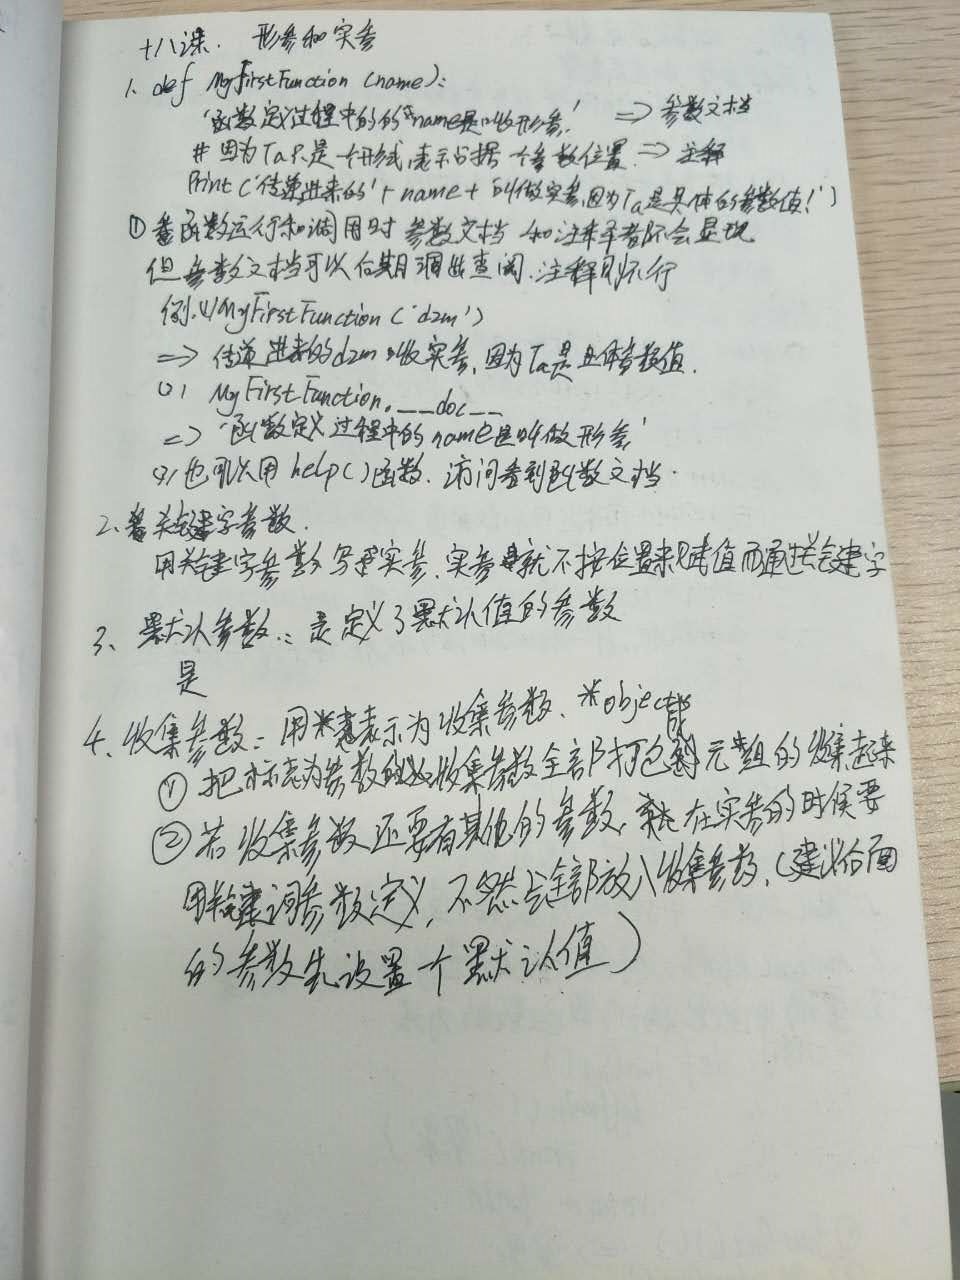 十八课. 形参和实参
1. def MyFirstFunction (name):
'函数定义过程中的的name是叫收形参.' => 参数文档
# 因为Ta只是一个形式,表示占据一个参数位置 => 注释
Print ('传递进来的' + name + '叫做实参,因为Ta是具体的参数值!')
① 函数运行和调用时 参数文档 和注释都不会显现
但参数文档可以后期调出查阅.注释则不行
例.(1) MyFirstFunction ('dzm')
=> 传递进来的dzm叫收实参,因为Ta是具体参数值.
(2) MyFirstFunction.__doc__
=> '函数定义过程中的name是叫做形参'
(3) 也可以用help()函数.访问看到函数文档.
2. 关键字参数.
用关键字参数 写实参.实参就不按位置来赋值而通过关键字
3、默认参数:定义了默认值的参数
是
4. 收集参数: 用*表示为收集参数. *object
① 把标志为参数的收集参数全部打包到元组的收集起来
② 若收集参数还要有其他的参数,在实参的时候要
用关键词参数定义,不然会全部放入收集参数,(建议后面
的参数先设置个默认值)